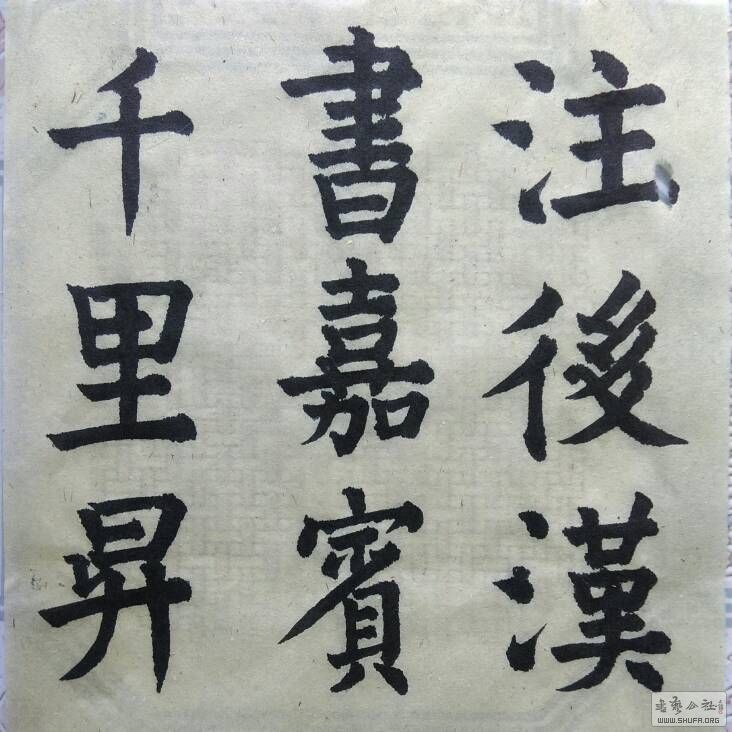 注後漢
書嘉賓
千里昇
書藝公社
WWW.SHUFA.ORG